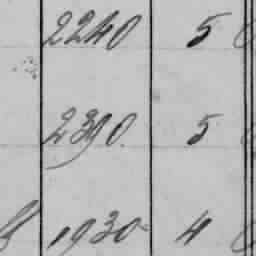 2240 5
2390. 5
1930 4